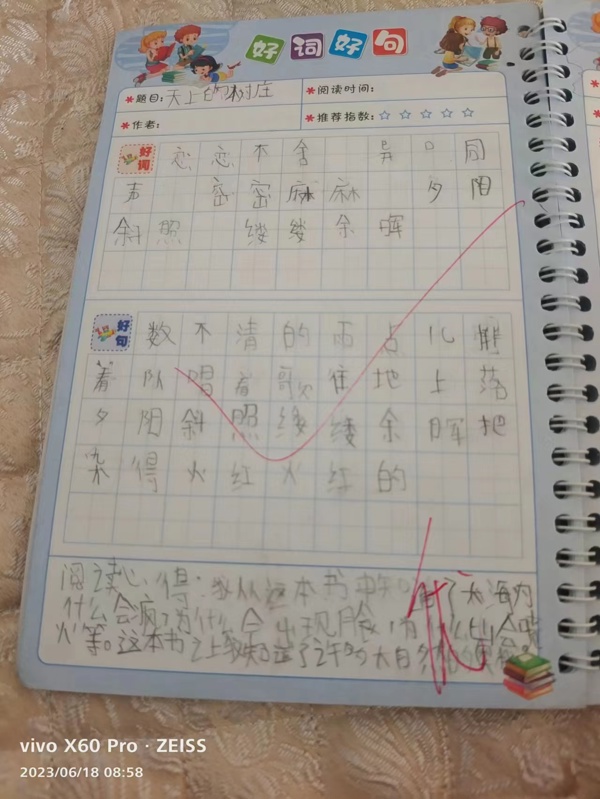 好词好句
*题目:天上的村庄
*阅读时间:
*作者:
*推荐指数:☆☆☆☆☆
好词 恋恋不舍 异口同
声 密密麻麻 夕阳
斜照 缕缕余晖
好句 数不清的雨点儿排
着队唱着歌往地上落
夕阳斜照缕缕余晖把
染得火红火红的
阅读心得:我从这本书中知 了大海为
什么会 为什么会出现月食,为什么 会喷
火等。这本书 了 大自然的
优
vivo X60 Pro · ZEISS
2023/06/18 08:58